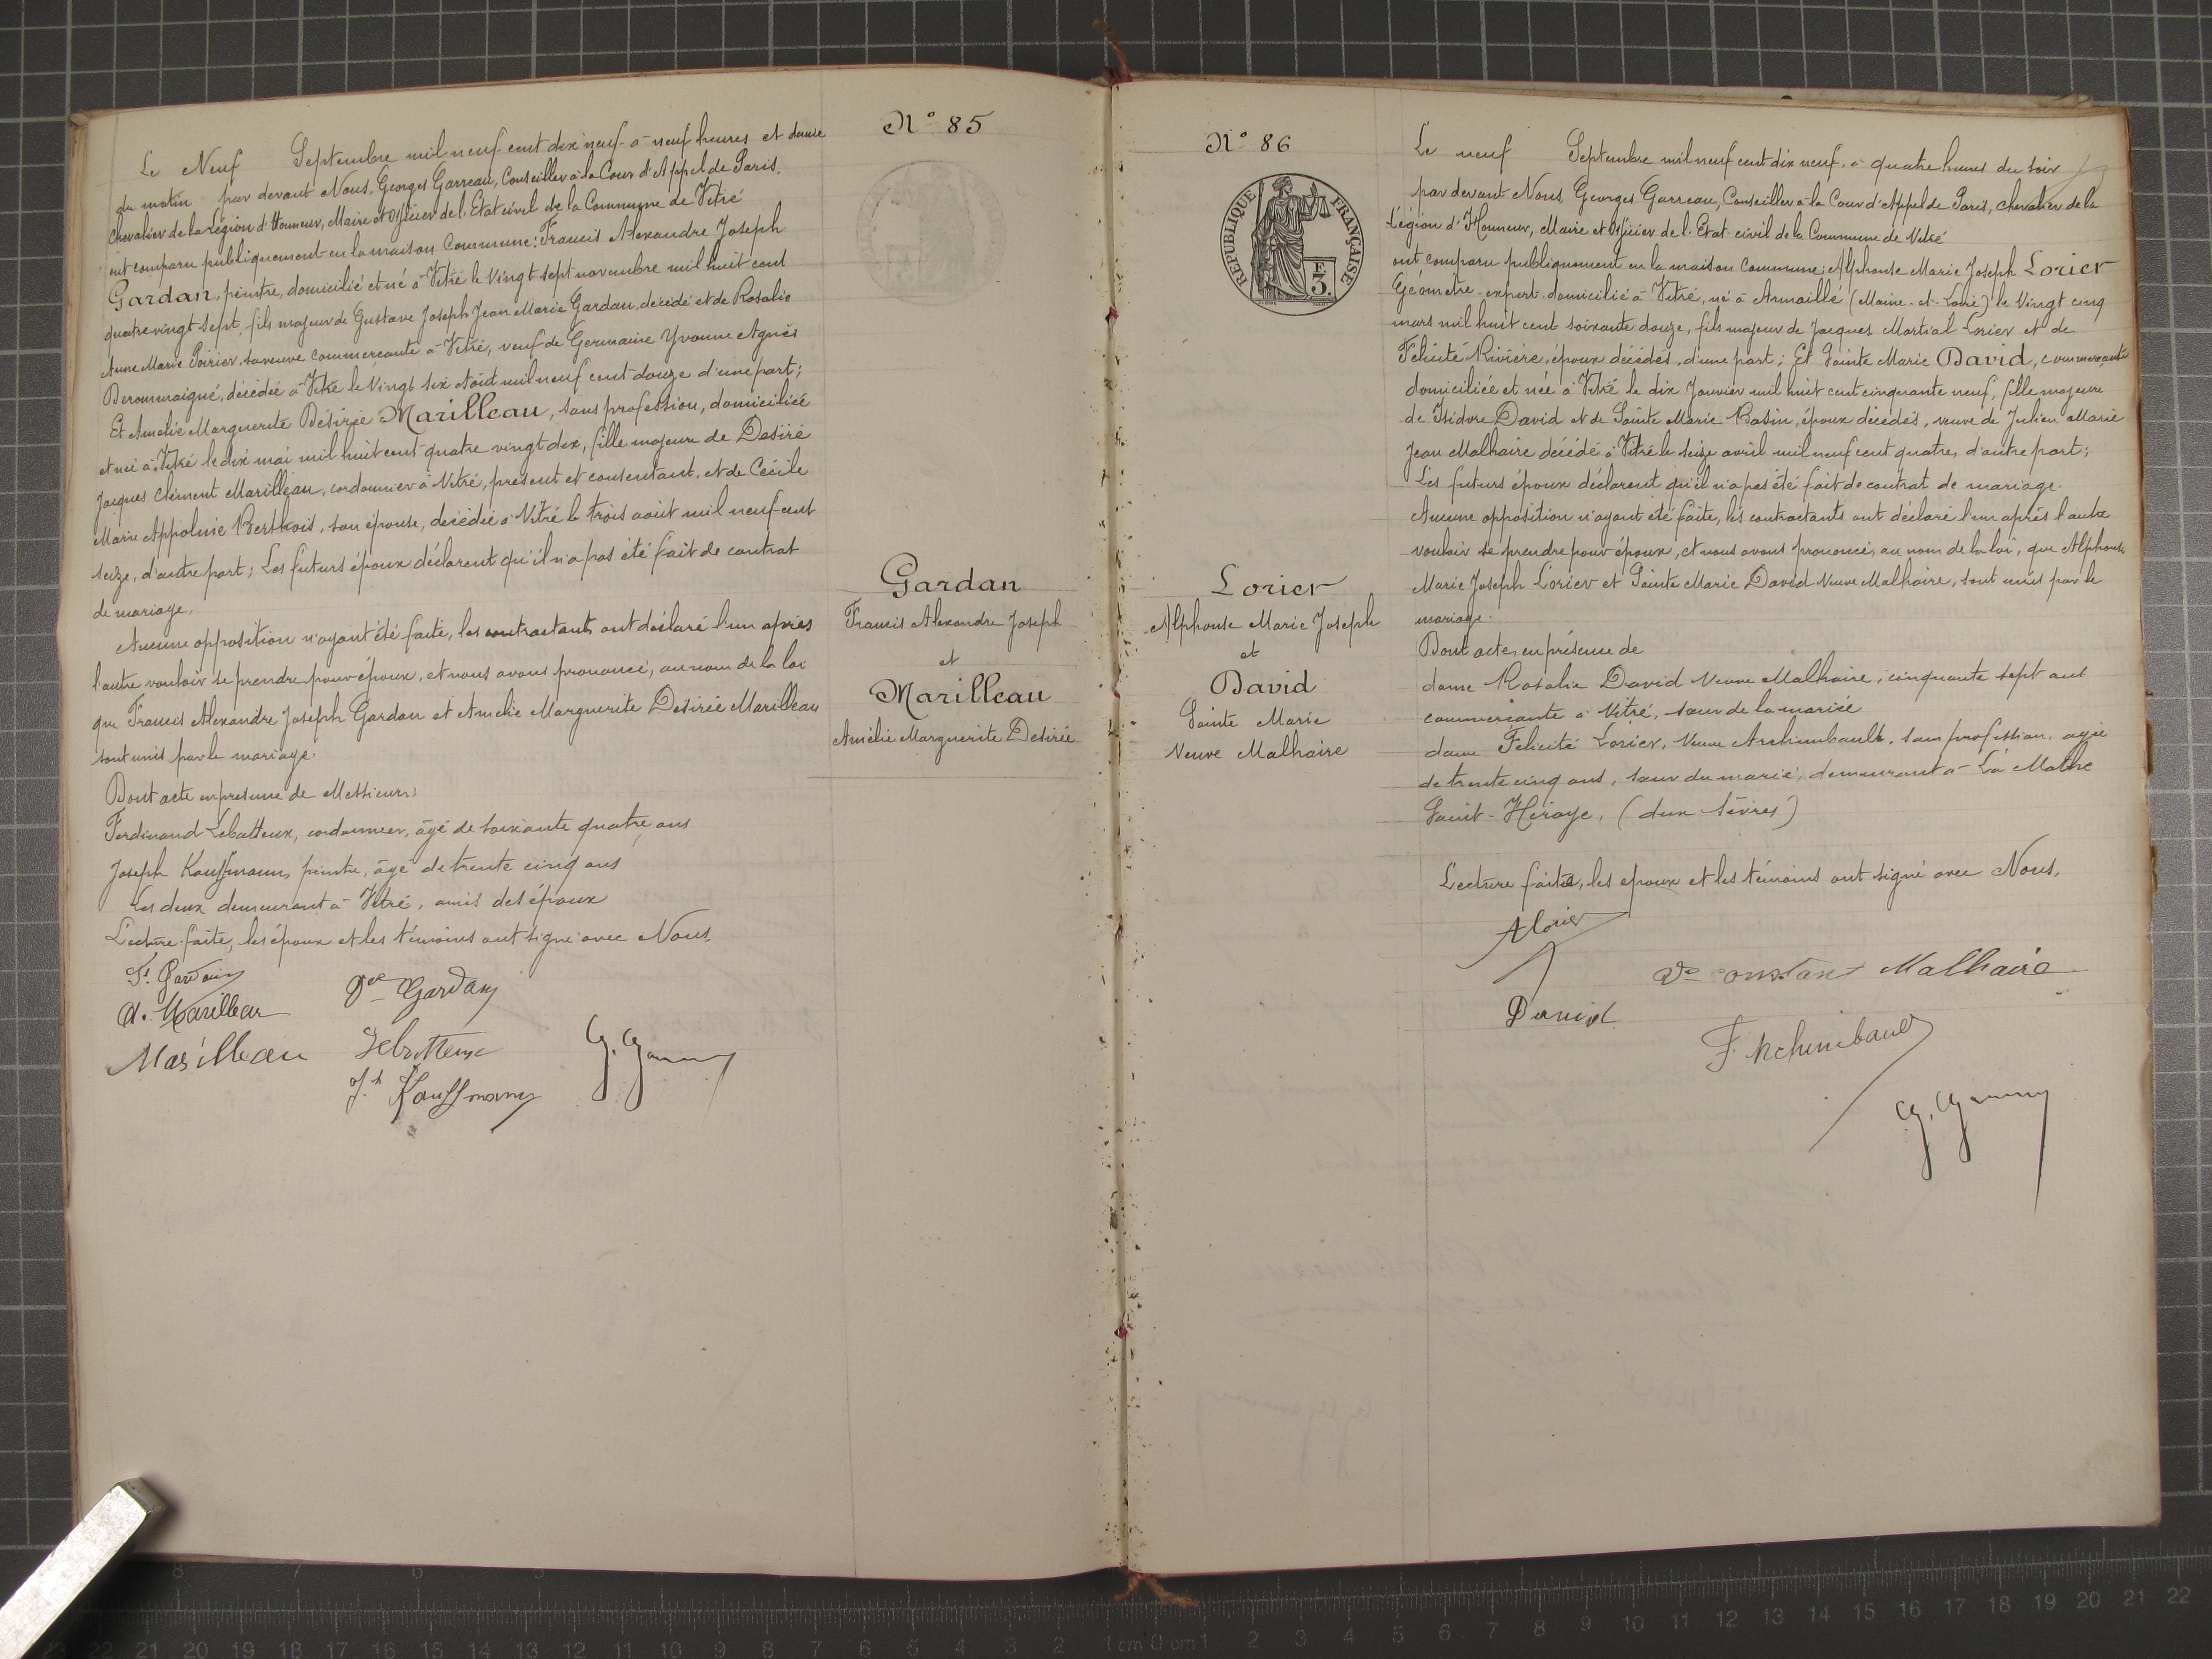 N° 85
Le Neuf Septembre mil neuf cent dix neuf à neuf heures et demie
du matin par devant Nous, Georges Garreau, Conseiller à la Cour d'Appel de Paris,
Chevalier de la Légion d'Honneur, Maire et Officier de l'Etat civil de la Commune de Vitré
ont comparu publiquement en la maison Commune: Francis Alexandre Joseph
Gardan, peintre, domicilié et né à Vitré le Vingt sept novembre mil huit cent
quatre vingt sept, fils majeur de Gustave Joseph Jean Marie Gardan, décédé et de Rosalie
Anne Marie Poirier sa veuve commerçante à Vitré, veuf de Germaine Yvonne Agnès
Derommaigné, décédée à Vitré le Vingt six Août mil neuf cent douze d'une part;
Et Amélie Marguerite Désirée Marilleau, sans profession, domiciliée
et née à Vitré le dix mai mil huit cent quatre vingt dix, fille majeure de Désiré
Jacques Clément Marilleau, cordonnier à Vitré, présent et consentant, et de Cécile
Marie Appoline Berthois, son épouse, décédée à Vitré le trois août mil neuf cent
seize, d'autre part; Les futurs époux déclarent qu'il n'a pas été fait de contrat
de mariage.
Aucune opposition n'ayant été faite, les contractants ont déclaré l'un après
l'autre vouloir se prendre pour époux, et nous avons prononcé, au nom de la loi
que Francis Alexandre Joseph Gardan et Amélie Marguerite Desirée Marilleau
sont unis par le mariage.
Dont acte en présence de Messieurs:
Ferdinand Lebatteux, cordonnier, âgé de soixante quatre ans
Joseph Kauffmann, peintre, âgé de trente cinq ans
Les deux demeurant à Vitré, amis des époux
Lecture faite, les époux et les témoins ont signé avec Nous.
Gardan
Francis Alexandre Joseph
et
Marilleau
Amélie Marguerite Desirée
F. Gardan
Vve Gardan
A. Marilleau
Marilleau
Lebatteux
G. Garreau
Jh Kauffmann
N° 86
REPUBLIQUE FRANÇAISE
F
3.
Lorier
Alphonse Marie Joseph
et
David
Sainte Marie
Veuve Malhaire
Le neuf Septembre mil neuf cent dix neuf, à quatre heures du soir
par devant Nous Georges Garreau, Conseiller à la Cour d'Appel de Paris, chevalier de la
Légion d'Honneur, Maire et Officier de l'Etat civil de la Commune de Vitré
ont comparu publiquement en la maison Commune: Alphonse Marie Joseph Lorier
Géomètre-expert domicilié à Vitré, né à Armaillé (Maine-et-Loire) le Vingt cinq
mars mil huit cent soixante douze, fils majeur de Jacques Martial Lorier et de
Félicité Rivière, époux décédés, d'une part; Et Sainte Marie David, commerçante
domiciliée et née à Vitré le dix Janvier mil huit cent cinquante neuf, fille majeure
de Isidore David et de Sainte Marie Basin, époux décédés, veuve de Julien Marie
Jean Malhaire décédé à Vitré le seize avril mil neuf cent quatre, d'autre part;
Les futurs époux déclarent qu'il n'a pas été fait de contrat de mariage.
Aucune opposition n'ayant été faite, les contractants ont déclaré l'un après l'autre
vouloir se prendre pour époux, et nous avons prononcé, au nom de la loi, que Alphonse
Marie Joseph Lorier et Sainte Marie David Veuve Malhaire, sont unis par le
mariage.
Dont acte, en présence de
dame Rosalie David Veuve Malhaire, cinquante sept ans
commerçante à Vitré, sœur de la mariée
dame Félicité Lorier, Veuve Archimbault, sans profession, agée
de trente cinq ans, sœur du marié, demeurant à La Mothe
Saint-Héraye, (deux Sèvres)
Lecture faite, les epoux et les témoins ont signé avec Nous,
A Lorier
Ve constant Malhaire
David
F. Archimbault
G. Garreau
8 6
23 22 21 20 19 18 17 16 15 14 13 12 11 10 9 8 7 6 5 4 3 2 1 cm 0 cm 1 2 3 4 5 6 7 8 9 10 11 12 13 14 15 16 17 18 19 20 21 22